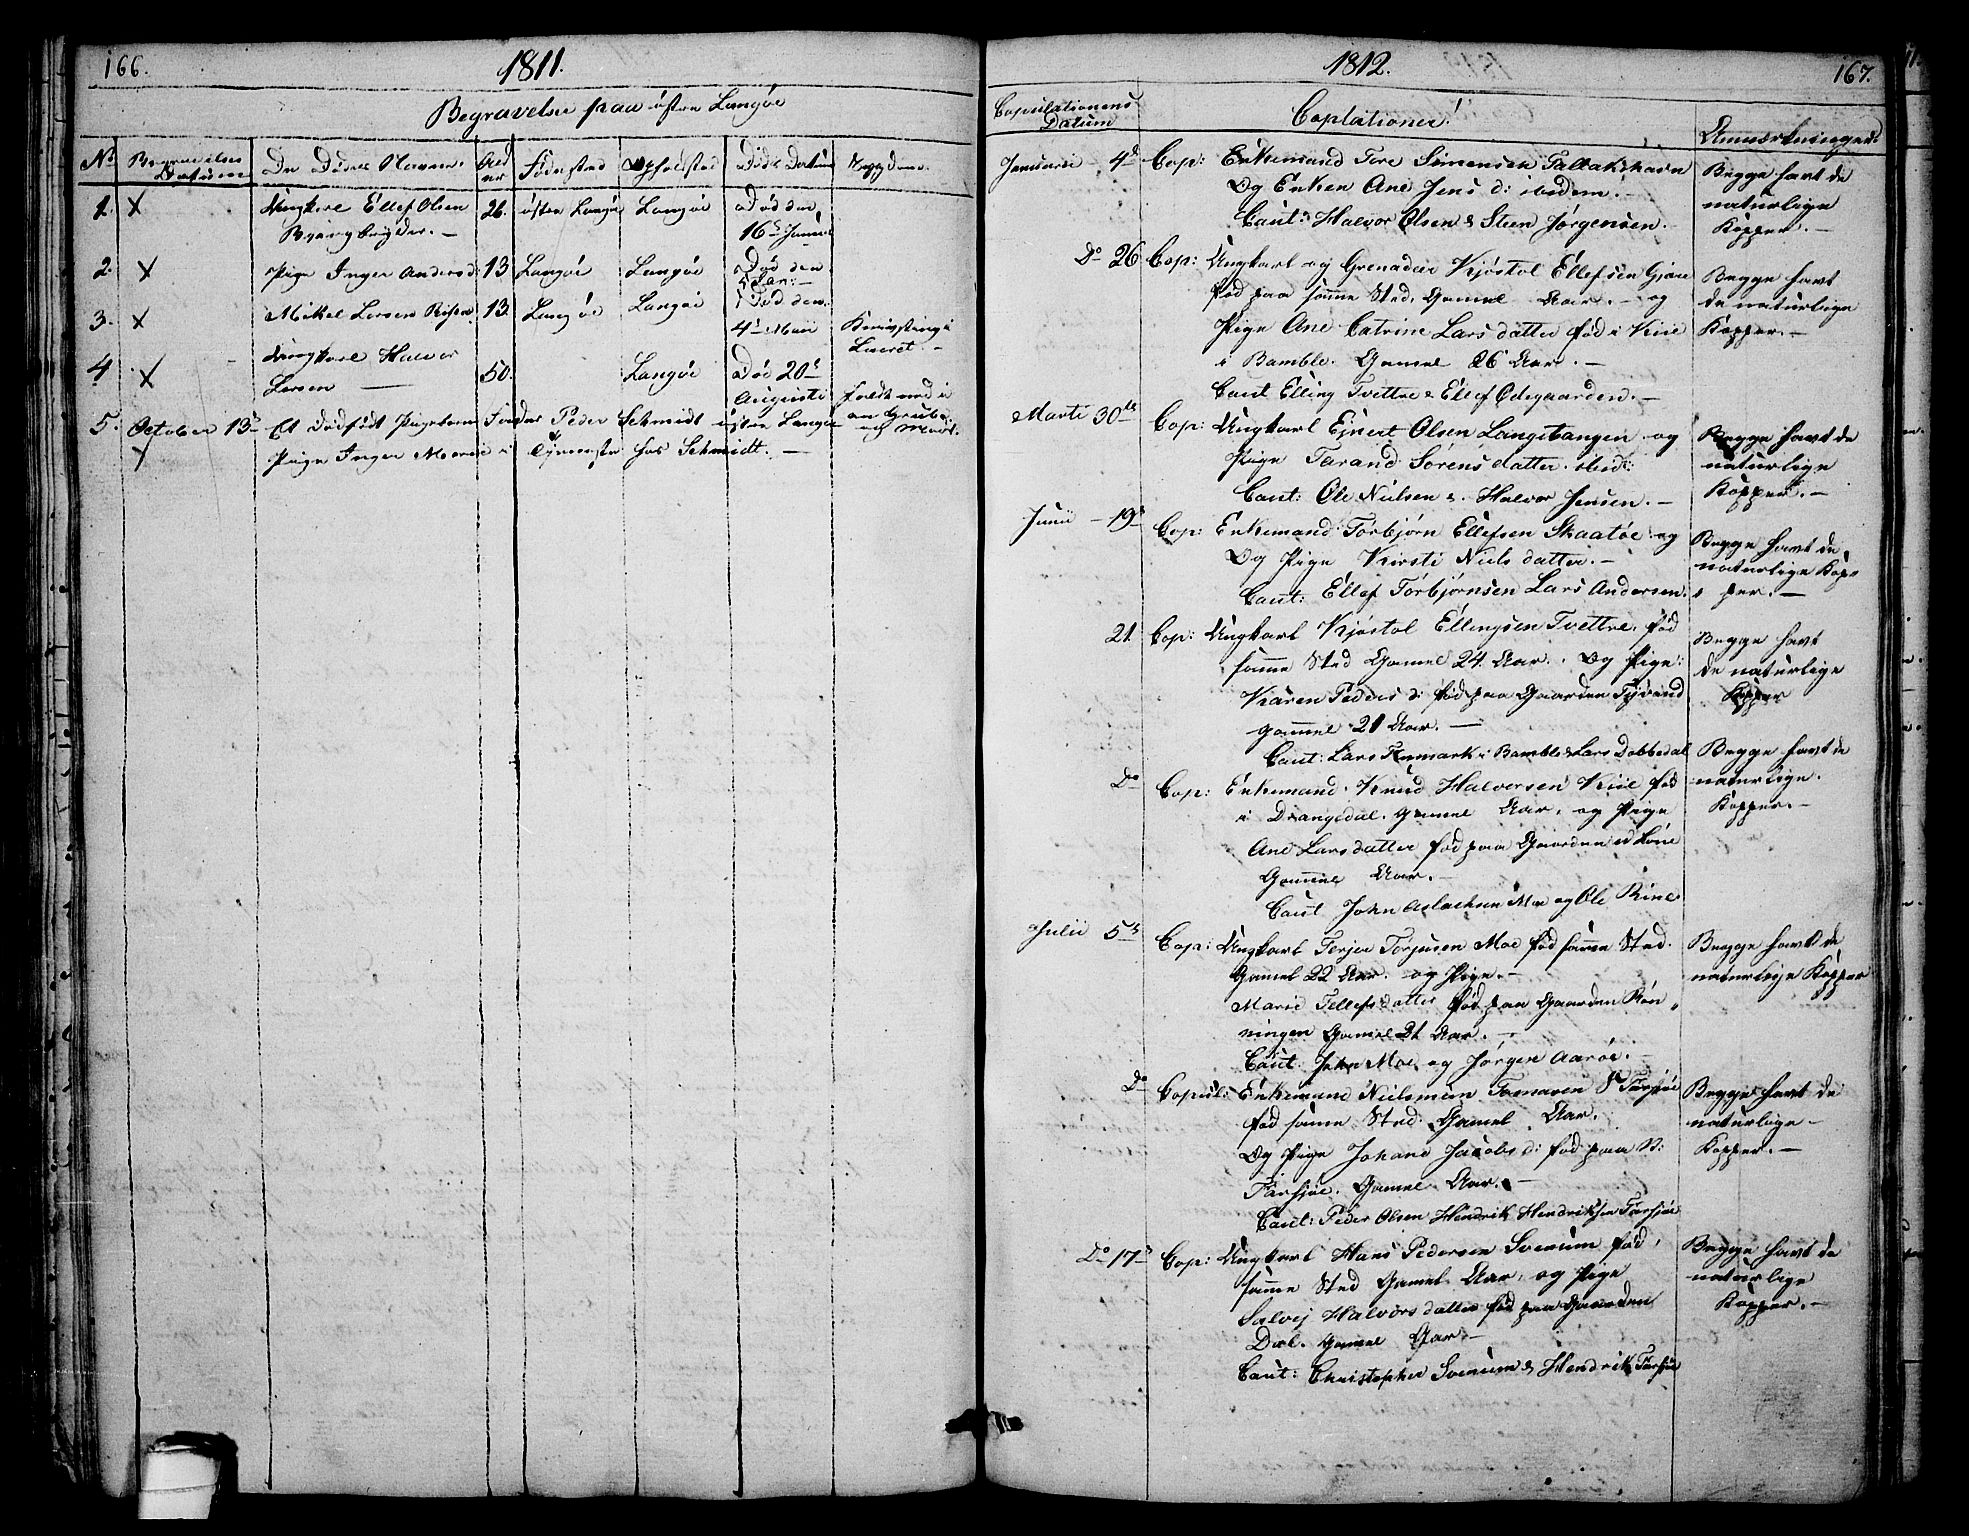 166.
1811.
Begravelse paa östre Langöe
No Begravelses Datum De Dödes Navne Alder Födested Opholdsted Döds Datum Sygdom
1. X Ungkarl Ellef Olsen 26. östre Langöe Langöe Död den
16de Januari
2. X Pige Inger Andersd: 13 Langöe Langöe Död den
Jan: –
3. X Mikel Larsen 13. Langöe Langöe Död den
4de Maii
4 X Ungkarl Halvor
Larsen 50. Langöe Död 20de
Augusti faldt ned i
en Grube
5. October 13de Et dödfödt Pigebarn Fader Peder Schmidt östre Langöe
X Pige Inger Marie i Tjeneste hos Schmidt. –
1812.
167.
Copulationens
Datum
Coplationer
Anmærkninger
Januarii 4de Cop: Enkemand Tore Simensen Tallakshavn
Og Enken Ane Jens d: ibidem. –
Caut: Halvor Olsen & Steen Jørgensen.
Begge havt de
naturlige
Kopper. –
Do 26 Cop: Ungkarl og Grenadeer Kjøstol Ellefsen
fød paa samme Sted, Gamel Aar. – og
Pige Ane Catrine Lars datter fød i
i Bamble. Gamel 26 Aar. –
Caut Elling Tvettre & Ellef Ødegaarden. –
Begge havt
de naturlige
Kopper. –
Marti 30te Cop: Ungkarl Ejnert Olsen Langetangen og
Pige Tarand Sörens datter. ibid:
Caut: Ole Nielsen & Halvor Jensen. –
Begge havt de
naturlige
Kopper. –
Junii – 19de Cop: Enkemand Torbjørn Ellefsen Skaatöe og
Og Pige Kirsti Niels datter. –
Caut: Ellef Torbjørnsen Lars Andersen.
Begge havt de
naturlige Kop-
per. –
21. Cop: Ungkarl Kjøstol Ellingsen Tvettre. fød
samme Sted Gamel 24. Aar. Og Pige:
Karen Peders d: fød paa Gaarden
gammel 21 Aar. –
Caut: Lars i Bamble & Lars Dobbedal
Begge havt
de naturlige
Kopper
Do Cop: Enkemand. Knud Halvorsen fød
i Drangedal. Gamel Aar. og Pige
Ane Lars datter fød paa Gaarden
Gammel Aar. –
Caut John Aslachsen Moe og Ole
Begge havt de
naturlige.
Kopper. –
Julii 5de Cop: Ungkarl Terjer Torjusen Moe fød samme Sted.
Gamel 22 Aar. og Pige. –
Marie Tellefs datter fød paa Gaarden Rön-
ningen Gamel 21 Aar. –
Caut. John Moe. og Jörgen Aaröe. –
Begge havt de
naturlige Kopper
Do Copul: Enkemand Farsjöe
fød samme Sted. Gamel Aar.
Og Pige Johand Jacobs d: fød paa N:
Farsjöe. Gamel Aar. –
Caut: Peder Olsen Hendrik Hendriksen Farsjöe
Begge havt de
naturlige –
Kopper. –
Do 17de Cop: Ungkarl Hans Pedersen Svenum fød,
samme Sted Gamel. Aar. og Pige
Salvej Halvors datter fød paa Gaarden
Dal. Gamel Aar –
Caut: Christopher Svenum & Hendrik Farsjöe
Begge havt de
naturlige
Kopper. –